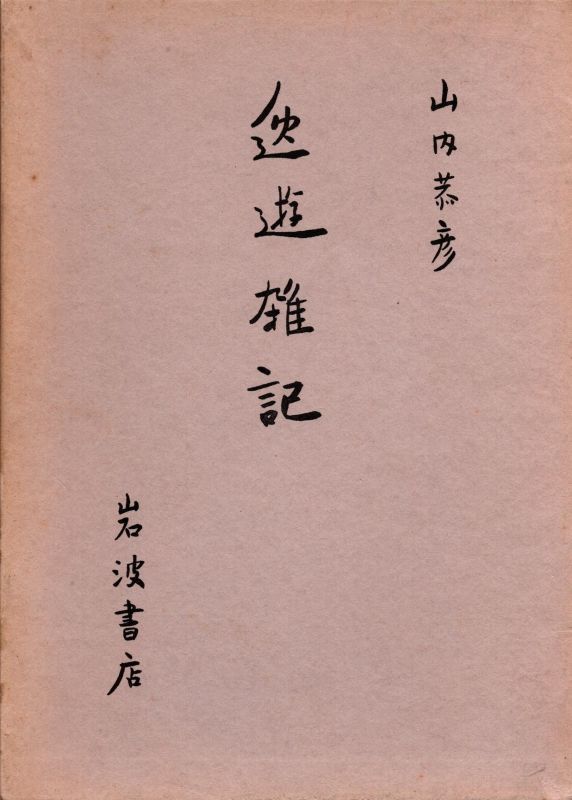 山内恭彦
逸遊雑記
岩波書店